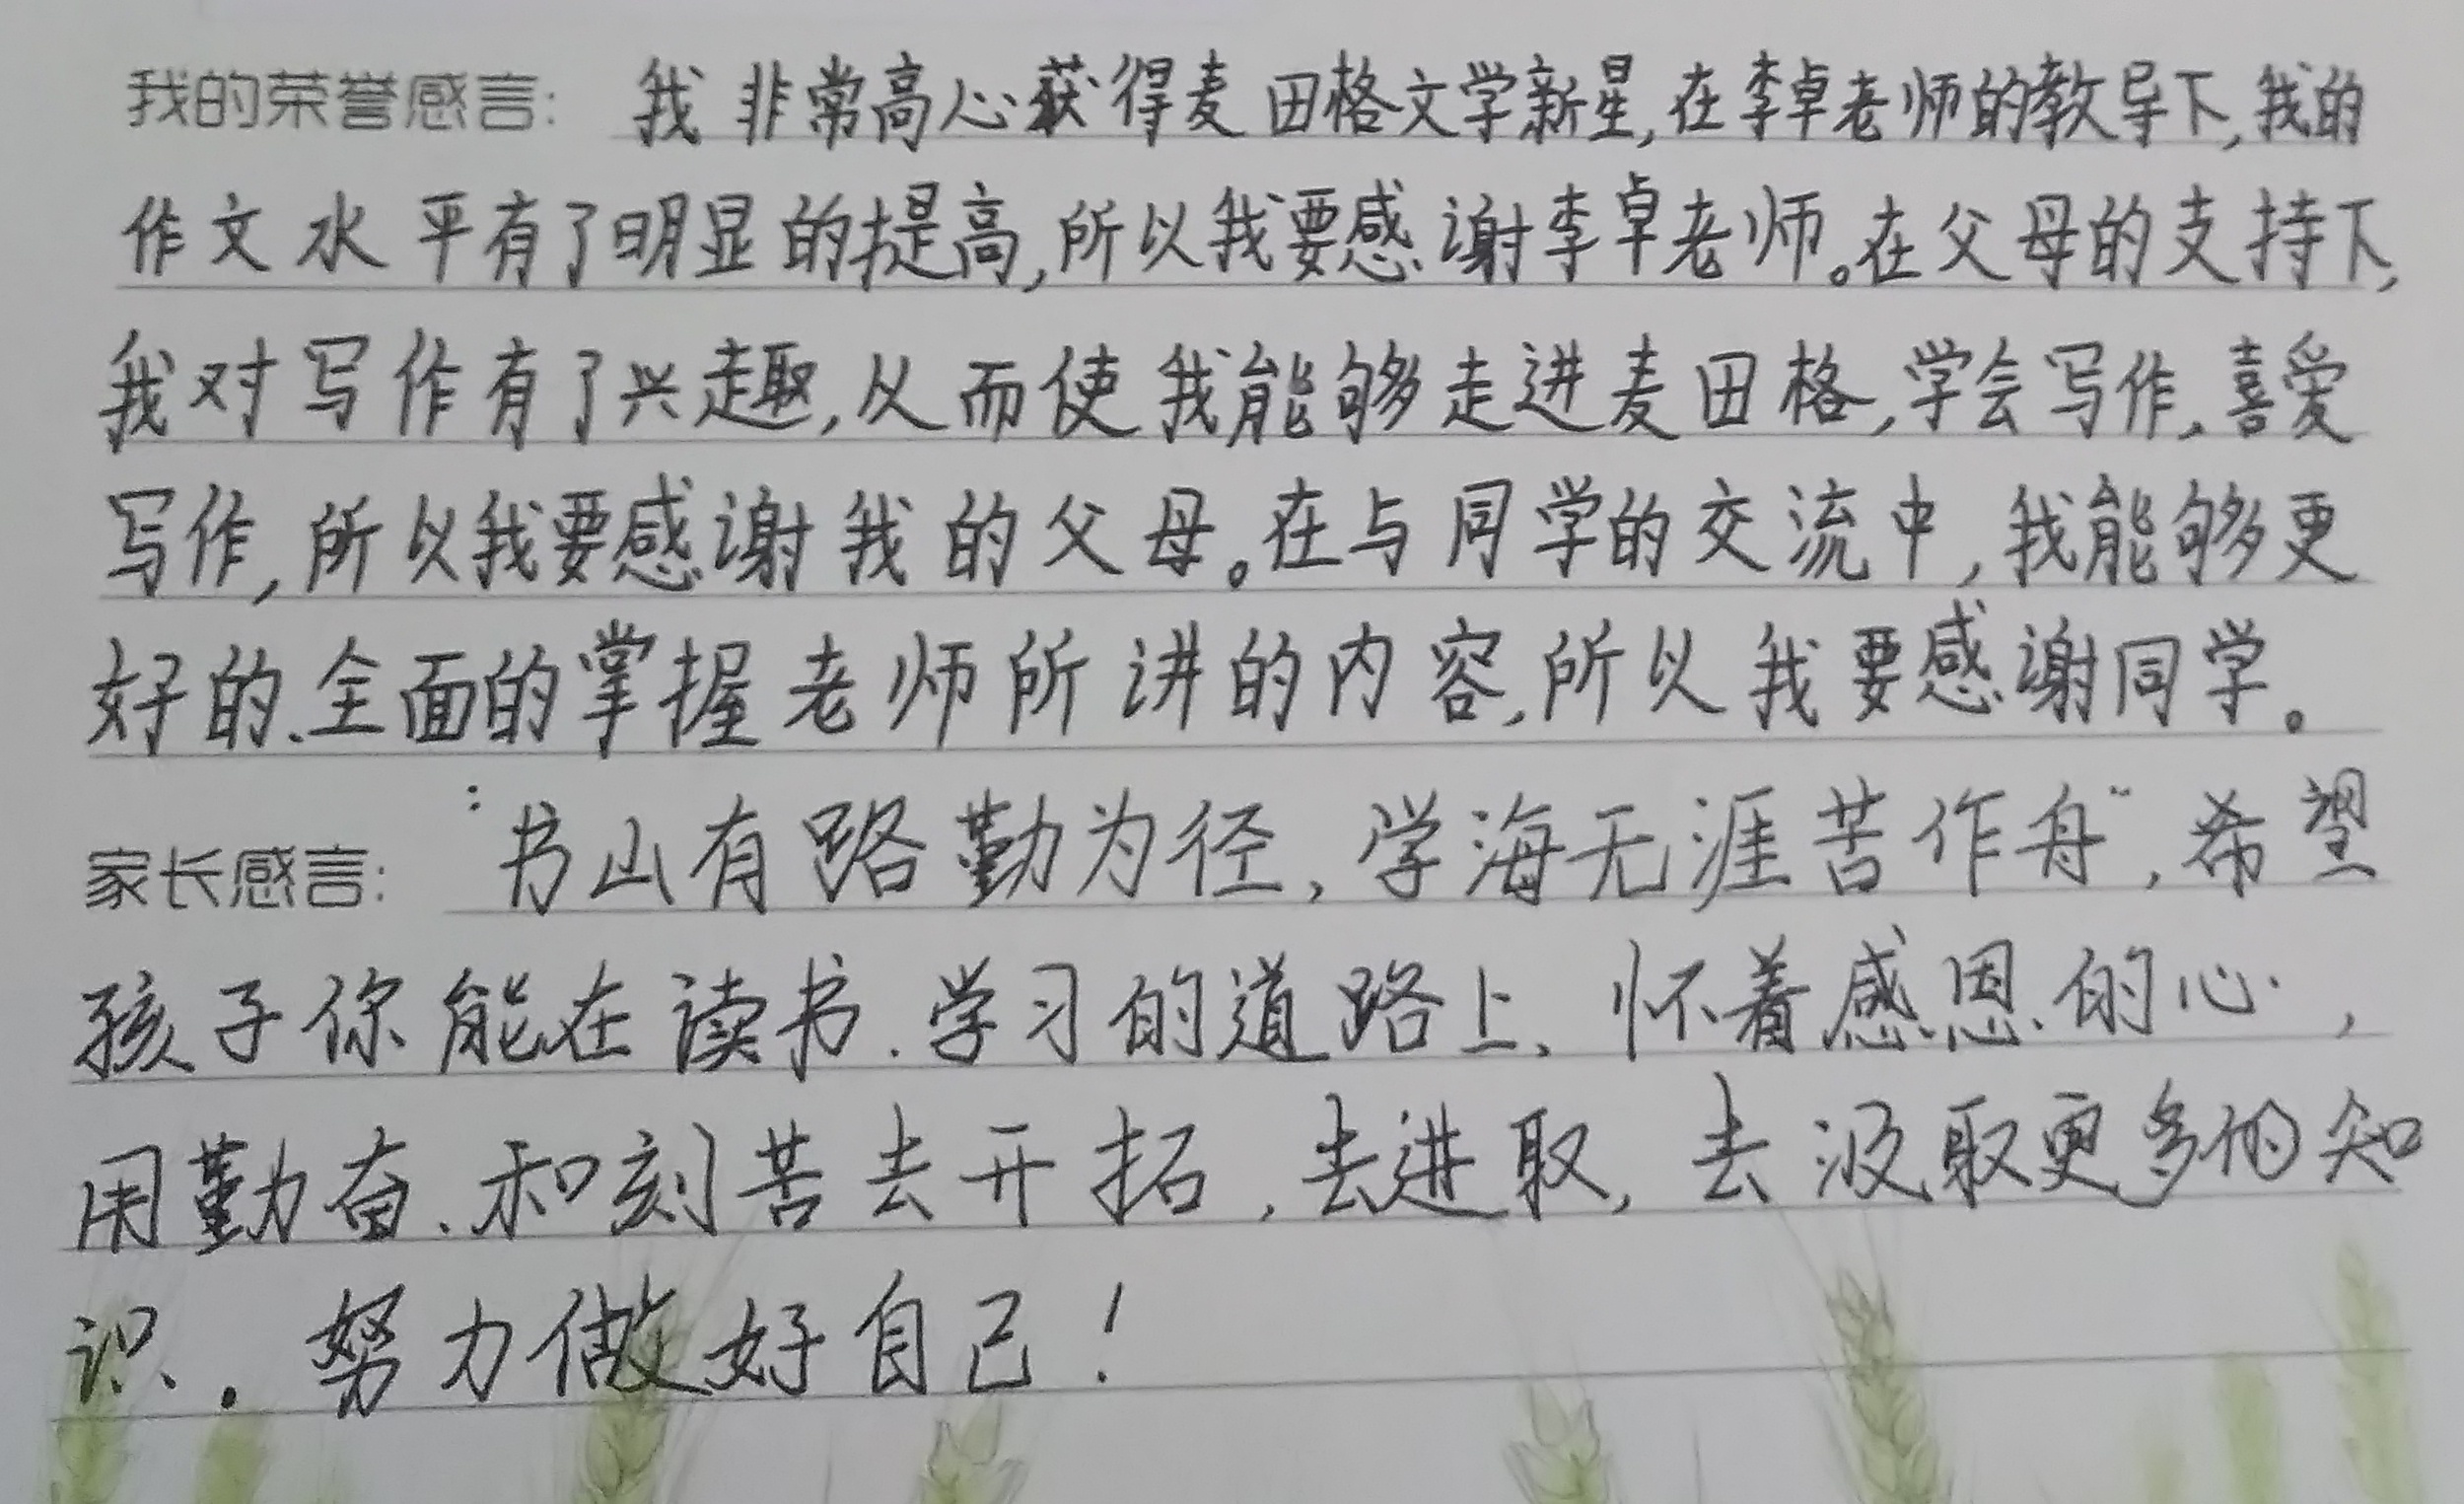 我的荣誉感言: 我非常高心获得麦田格文学新星,在李卓老师的教导下,我的
作文水平有了明显的提高,所以我要感谢李卓老师。在父母的支持下,
我对写作有了兴趣,从而使我能够走进麦田格,学会写作,喜爱
写作,所以我要感谢我的父母。在与同学的交流中,我能够更
好的、全面的掌握老师所讲的内容,所以我要感谢同学。
家长感言: “书山有路勤为径,学海无涯苦作舟”,希望
孩子你能在读书、学习的道路上、怀着感恩的心,
用勤奋、和刻苦去开拓,去进取,去汲取更多的知
识. 努力做好自己!